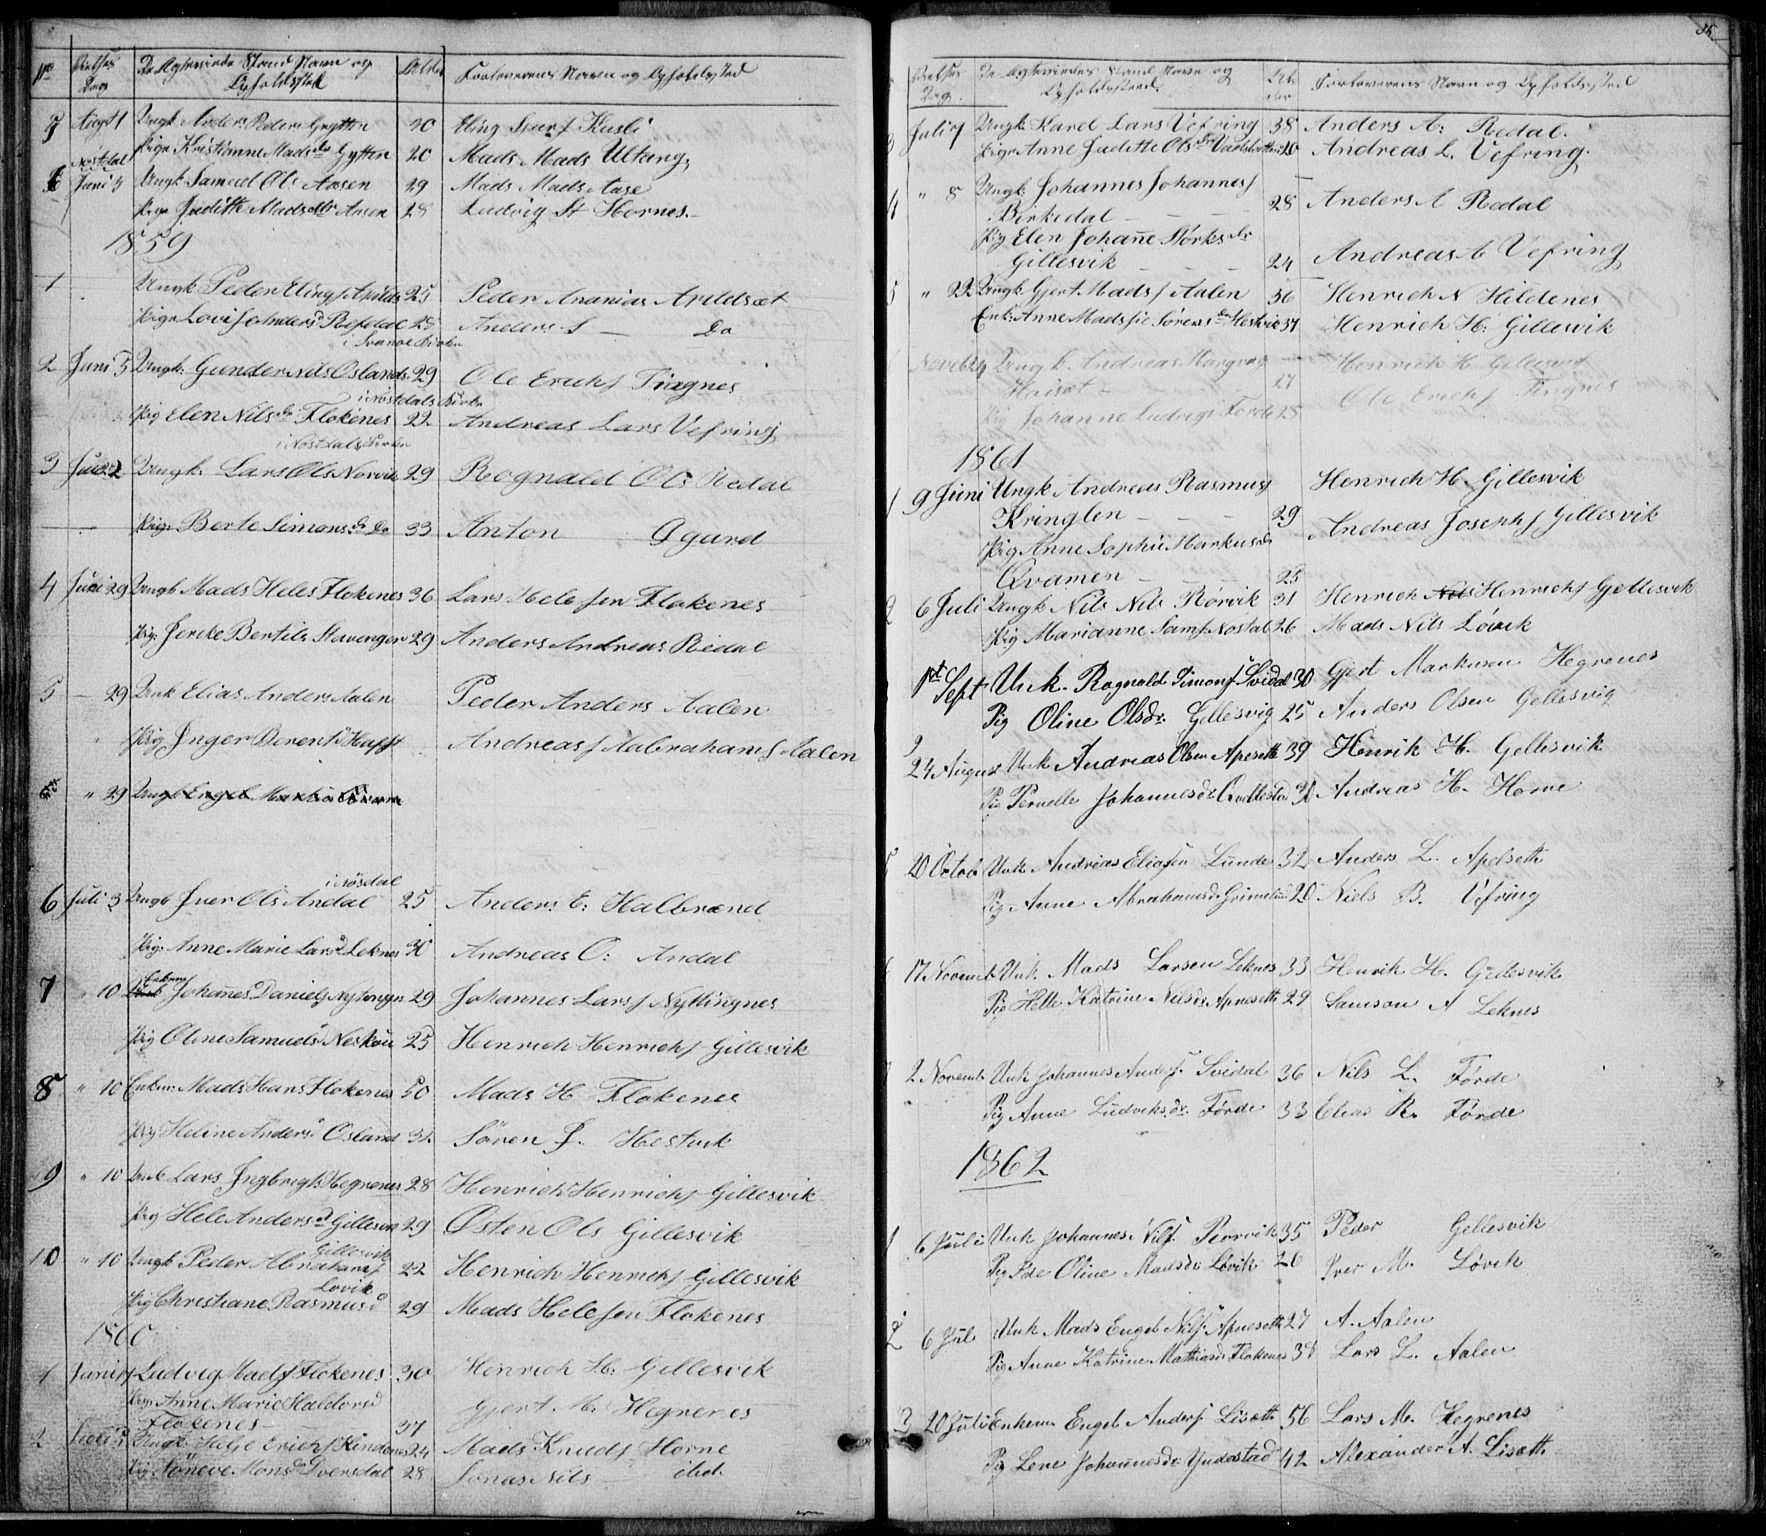 No Vielses Dag De Ægtevirde Stand Navn og Opholdssted Alder Forloverens Navn og Opholdssted
7 August 1 Ungk Anders Peders Grytten 30 Eling Kusli
Pige Kristianne Madsdr Gytten 20 Mads Mads Ultang
Nøstdal
8 Juni 4 Ungk Samuel Ols Aasen 29 Mads Mads Aase
Pige Judithe Madsdtr Aasen 28 Ludvig St Hornes
1859
1 Ungk Peder Elings Apilds 25 Peder Ananias Apildsæt
Pige Lovise Anders Refsdal 25 Anders S — Do
i Svanøe Kirke
2 Juni 5 Ungk. Gunder Nils Oslands 29 Ole Erichs Tingnes
i Nøstdals Kirke
Pig Elen Nilsdr Flokenes 22 Andreas Lars Vefring
i Nøstdals Kirke
3 22 Ungk. Lars Ols Norvik 29 Rognald Ols Redal
Pige Berte Simonsdr Do 33 Anton Agard
4 Juni 29 Ungk Mads Heles Flokenes 36 Lars Helesen Flokenes
Pig: Bertils Stavenges 29 Anders Andreas Redal
5 — 29 Unk Elias Anders Aalen Peder Anders Aalen
Pig Inger Berent Andreas Aabrahams Aalen
6 " 29 Ungk Engel
i Nøsdal
6 Juli 3 Ungk Iver Ols Andal 25 Anders E: Halbrænd
Pig: Anne Marie Larsd Leknes 30 Andreas O: Andal
7 " 10 Enkem Johanes Daniels Nytingnes 29 Johannes Lars Nyttingnes
Pig Oline Samuels Neskøn 25 Henrich Henrichs Gillesvik
8 " 10 Enkem: Mads Hans Flokenes 50 Mads H Flokenes
Pig Heline Anders Osland 32 Sören J. Hestvik
9 " 10 Unk Lars Ingbrigts Hegrenes 28 Henrich Henrichs Gillesvik
Pig Hele Andersd Gillesvik 29 Østen Ols Gillesvik
Gillesvik
10 " 10 Ungk Peder Abrahams 22 Henrich Henrichs Gillesvik
Lovik
Pig Christiane Rasmusd 29 Mads Helesen Flokenes
1860
1 Juni Ludvig Mads Flokenes 30 Henrich H: Gillesvik
Pige Anne Marie Haldorsd Gjert M. Hegrenes
Flokenes 37
2 Juli 5 Ungk. Helje Erichs Hindenes 24 Mads Knuds Horne
Pig Söneve Monsd Dversdal 28 Jonas Nils ibid.
Vielses Dag De Ægtevirdes Stand Navn og Opholdssted Alder Forloverens Navn og Opholdssted
3 Juli 7 Ungk Karel Lars Vefring 38 Anders A: Redal.
Pige Anne Judithe Olsdr 25 Andreas L. Vefring.
4 " 8 Ungk: Johannes Johannes
Birkedal 28 Anders A Redal
Pig Elen Johane Størksdr
Gillesvik 24 Andreas A Vefring
5 " 22 Ungk Gjert Mads Aalen 36 Henrich N Hildenes
Enk: Anne Madsfie Sörensdr Hestvik 37 Henrich H: Gillesvik
Novebr 4 Ungk Andreas Henrich H Gillesvik
27
Ole Erichs Tingnes
Pig Johanne Ludvigs Förde 25
1861
1 9 Juni Ungk Andreas Rasmus Henrich H. Gillesvik
Kringlen 29
Andreas Josephs Gillesvik
Pig Anne Sophie Markusdr
Qvamen 25
2 6 Juli Ungk Nils Nils Rørvik 31 Henrich Nils Henrichs Gellesvik
Pig Marianne Sams Nostal 26 Mads Nils Løvik
1st Sept Unk. Rognald Simons Svidal 30 Gjert Markusen Hegrenes
Pig Oline Olsdr. Gellesvig 25 Anders Olsen Gellesvig
24 August Unk Andreas Olsen Apeseth 39 Henrik H. Gellesvik
Pie Pernelle Johannesdr 30 Andreas H. Horne
5 20 Octob Unk Andreas Eliasen Lunde 32 Anders L. Apelseth
Pig Anne Abrahamsdr Grimelid 20 Niels B. Vefring
17 Novemb Unk. Mads Larsen Leknes 33 Henrik H. Gellesvik
Pig Helle Katrine Nilsdr Apneseth 29 Samson A Leknes
7 2 Novemb Unk Johannes Anders. Svidal 36 Nils L. Førde
Pig Anne Ludviksdr. Førde 33 Elias R. Førde
1862
1 6 Juli Unk Johannes Nils. Rørvik 35 Peder Gellesvik
Pig Ida Oline Madsdr Løvik 26 Iver M. Løvik
2 6 Juli Unk Mads Engeb Nils. Apneseth 27 A. Aalen
Pig Anne Katrine Mathiasdr Flokenes 38 Lars L. Aalen
3 20 Juli Enkem Engeb Anders Liseth 56 Lars M. Hegrenes
Pig Lene Johannesdr Yndestad 42 Alexander A. Liseth